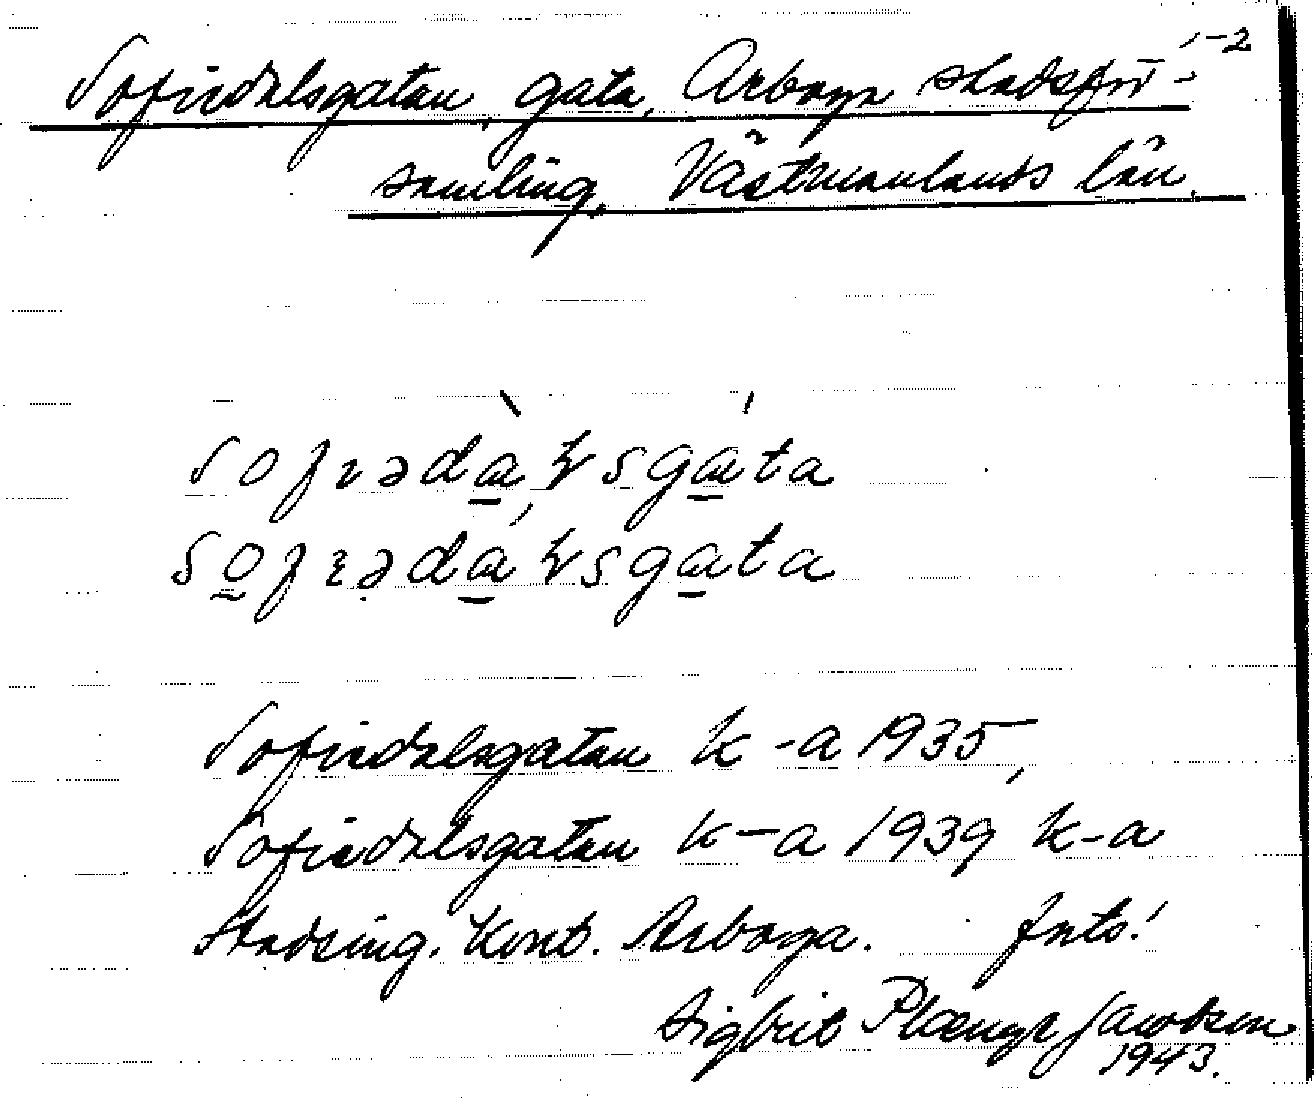 1-2
Sofiedalsgatan, gata, Arboga stadsför-
samling, Västmanlands län.
sofıədà,ɫsgáta
sofıədá,ɫsgata
Sofiedalsgatan k-a 1935,
Sofiedalsgatan k-a 1939 k-a
Stadsing. kont. Arboga. forts!
Sigbrit Plænge Jacobson
1943.